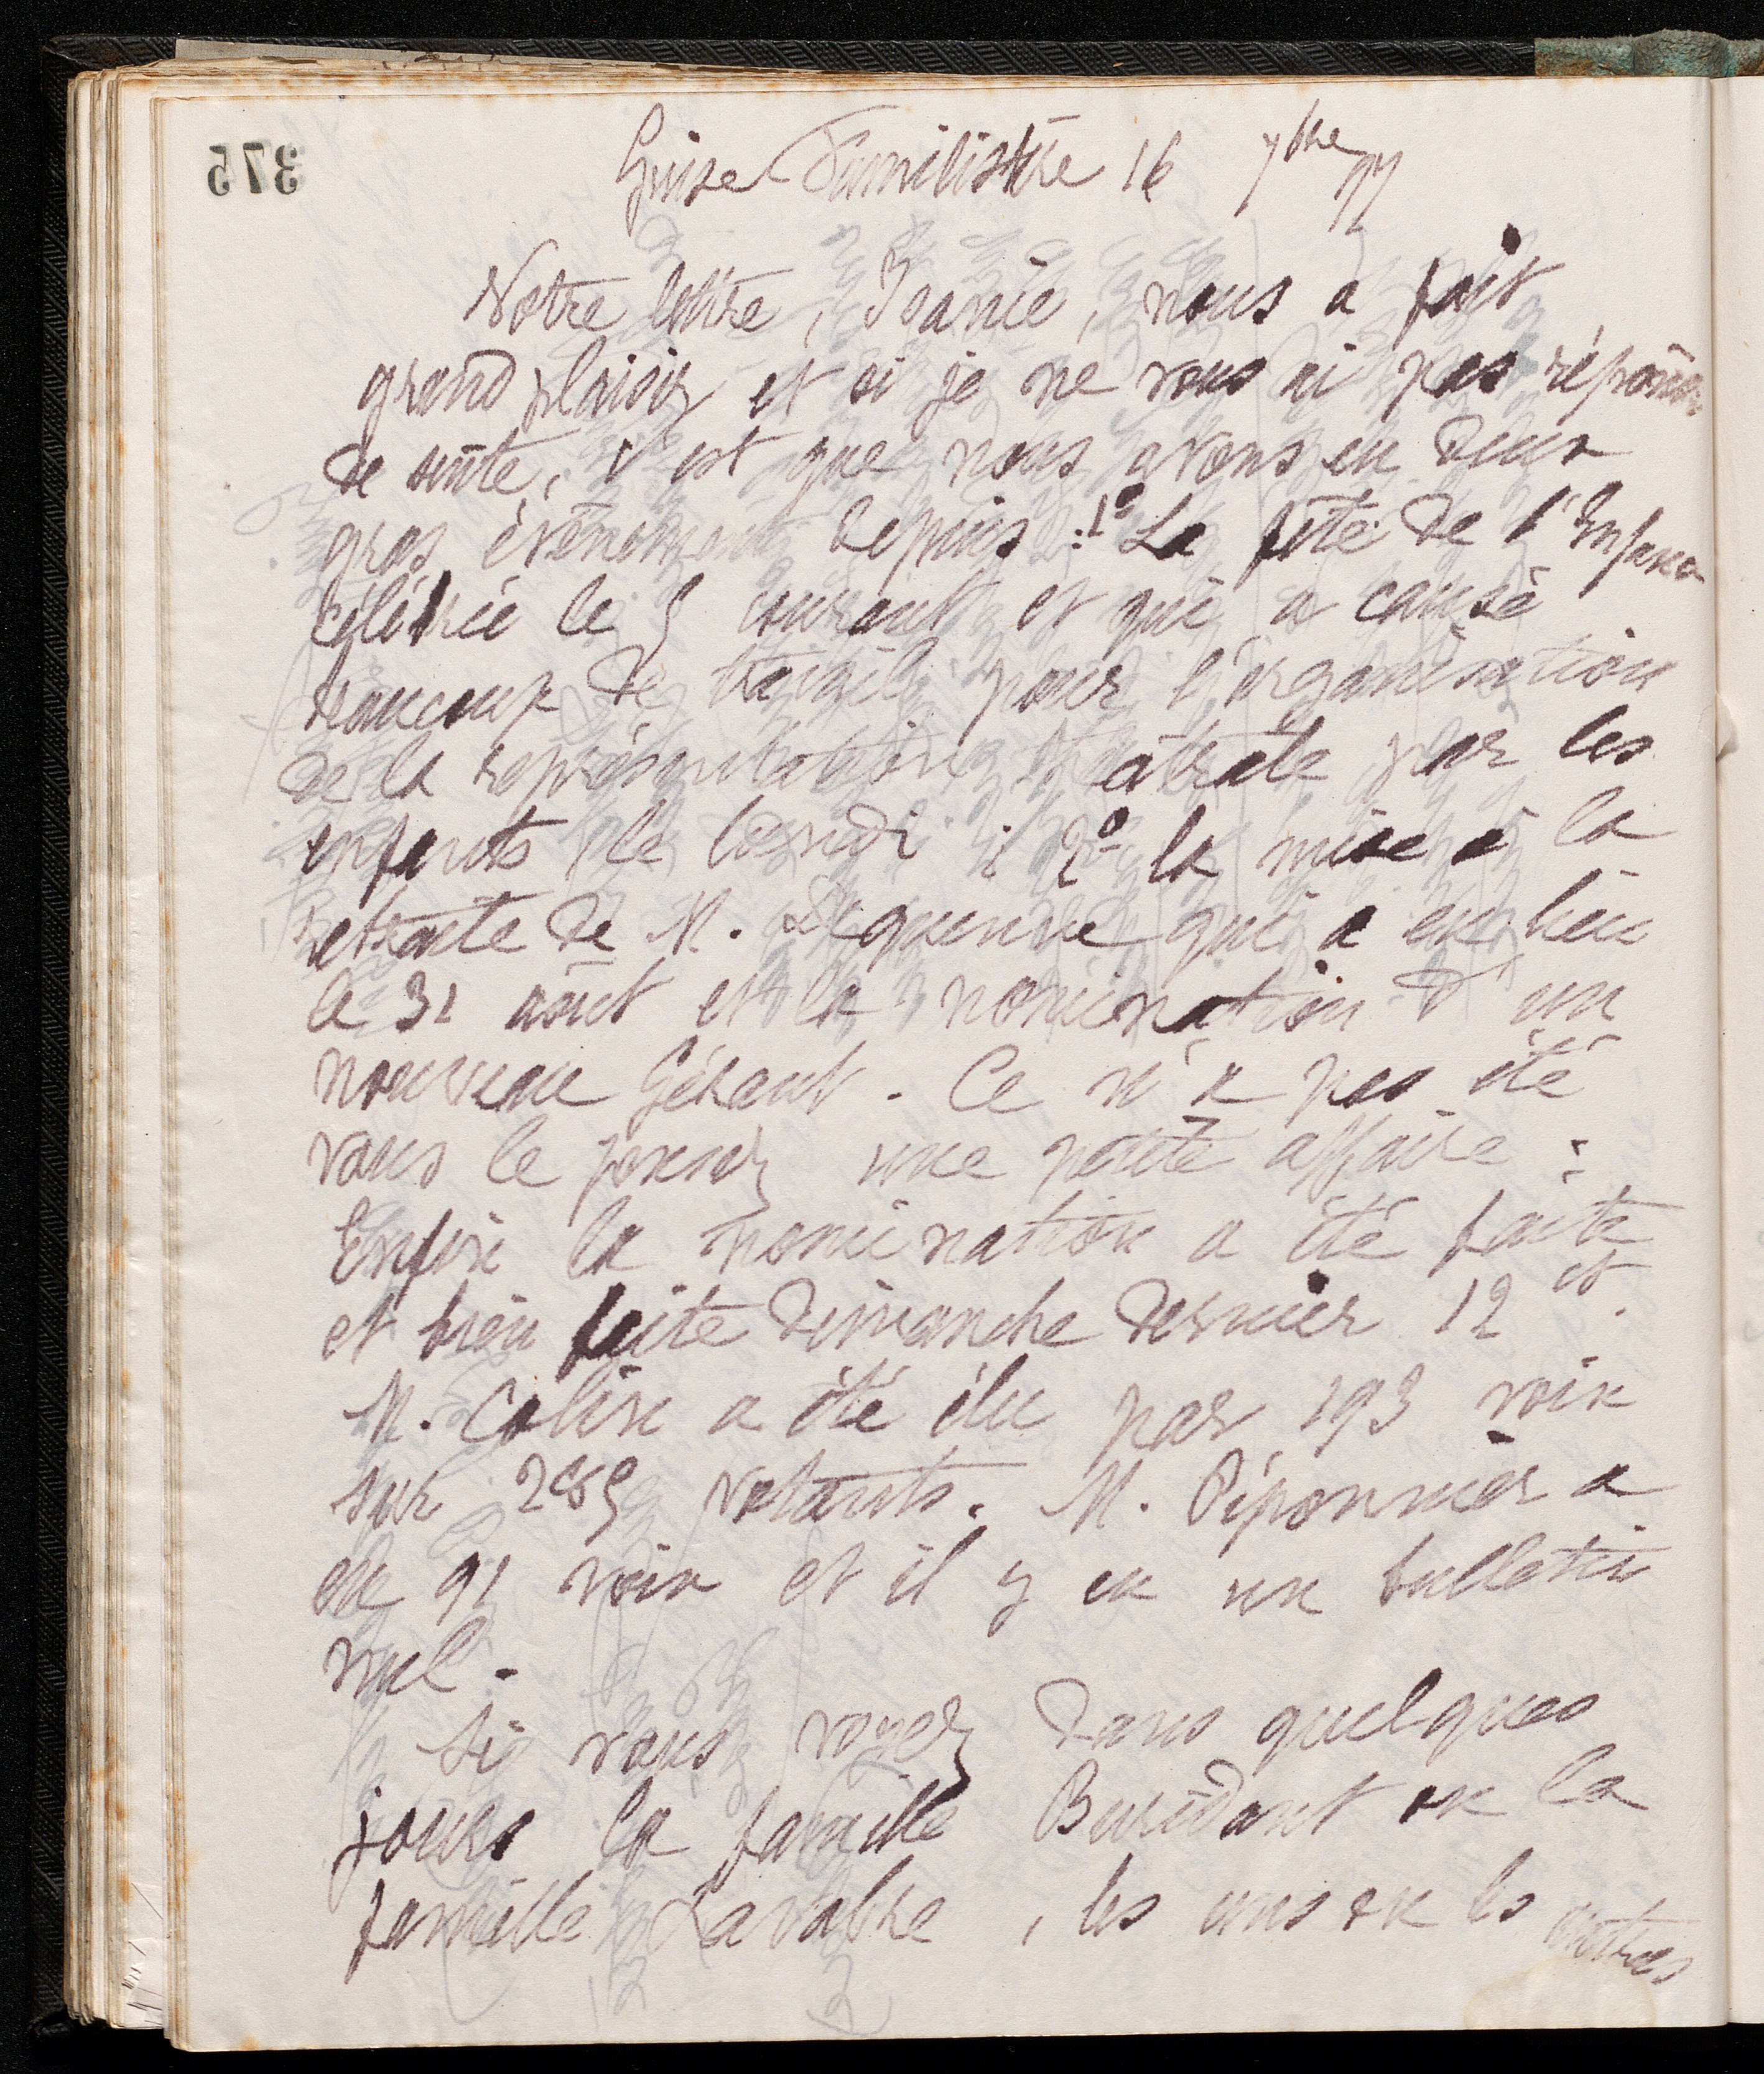 375
Guise Familistère 16 7bre 97
Votre lettre, Isanie, nous a fait
grand plaisir et si je ne vous ai pas répondu
de suite, c'est que nous avons eu deux
gros évènements depuis : 1o La fête de l'Enfance
célébrée le 5 courant et qui a causé
beaucoup de travail pour l'organisation
de la représentation théâtrale par les
enfants le lundi ; 2o la mise à la
retraite de M. Dequenne qui a eu lieu
le 31 août et la nomination d'un
nouveau Gérant. Ce n'a pas été
vous le pensez une petite affaire :
Enfin la nomination a été faite
et bien faite dimanche dernier 12 ct.
M. Colin a été élu par 193 voix
sur 285 votants. M. Piponnier a
eu 91 voix et il y eu un bulletin
nul.
Si vous voyez dans quelques
jours la famille Buridant ou la
famille , les uns ou les autres